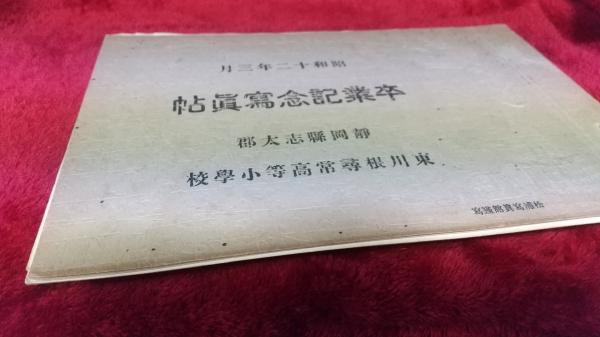 昭和十二年三月
卒業記念寫眞帖
靜岡縣志太郡
東川根尋常高等小學校